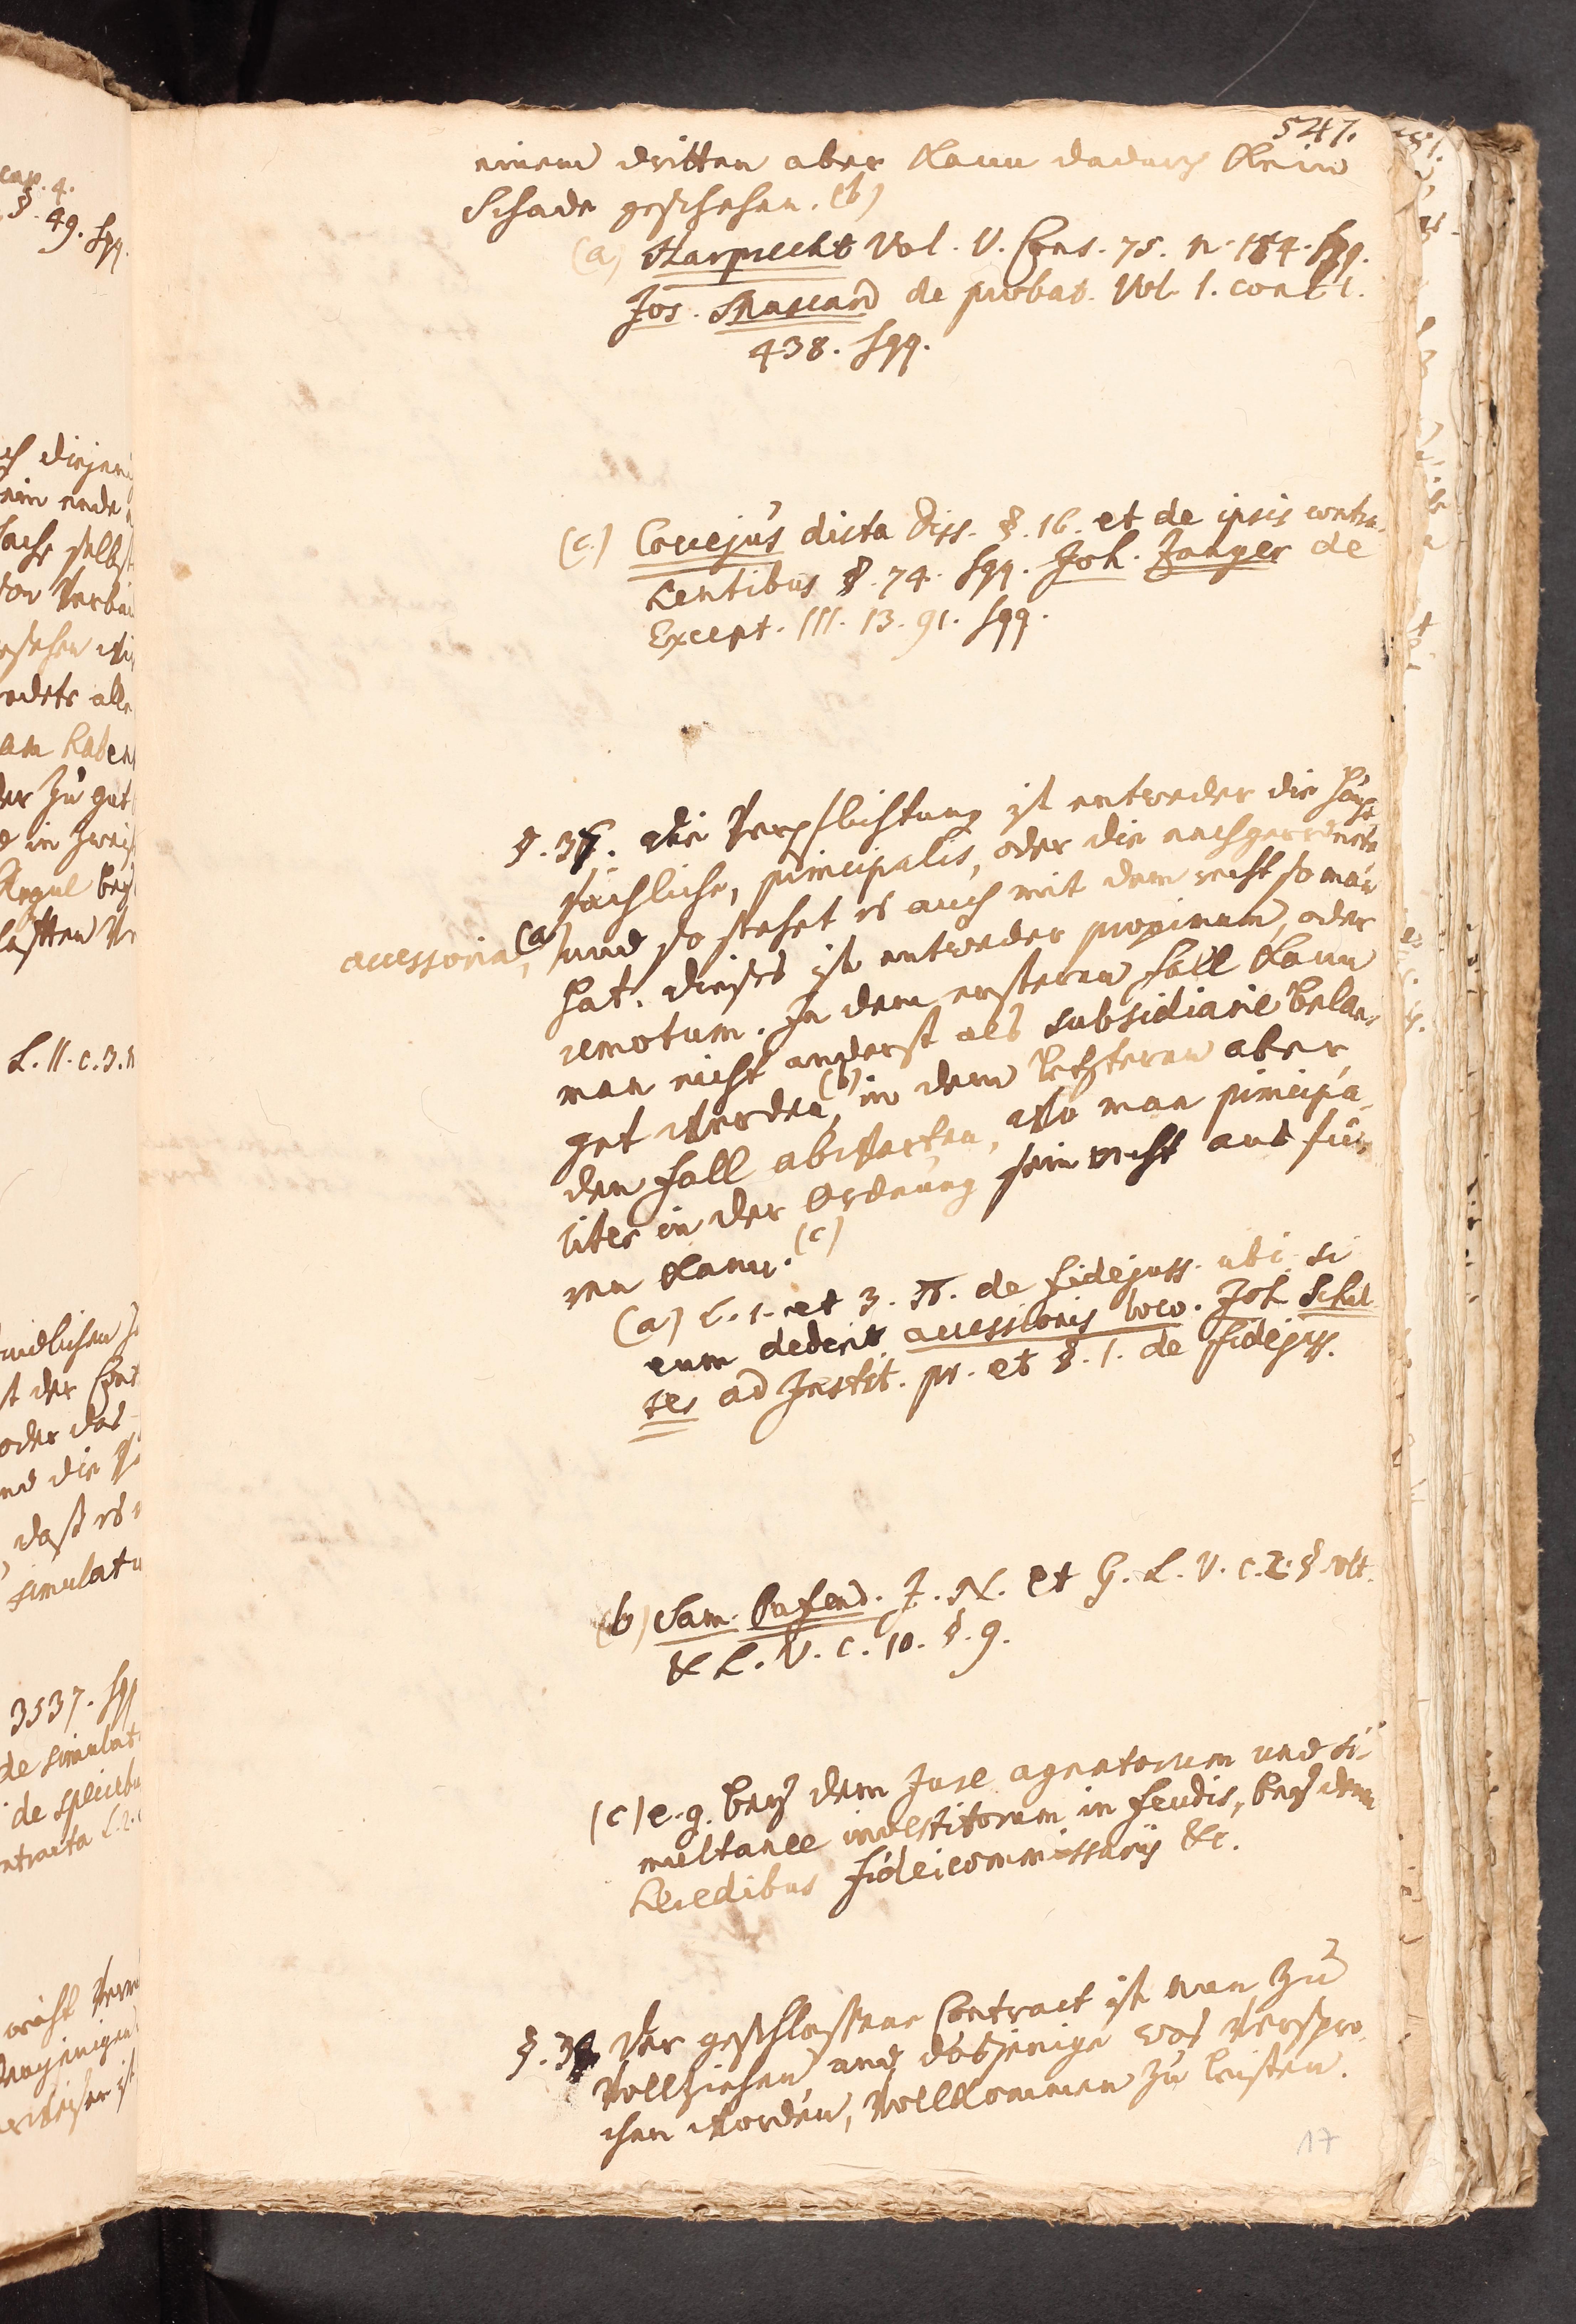 547.
einem dritten aber kann dadurch kein
Schade geschehen. (b)
(a) Harprecht Vol. V. Cons. 75. n. 184. sqq.
Jos. Mascard de probat. Vol. 1. concl.
438. sqq.
(c.) Coccejus dicta Diss. §. 16. et de ipsis contra-
hentibus §. 74. sqq. Joh. Zanger de
Except. III. 13. 91. sqq.
§. 37. Die Verpflichtung ist entweder die Haupt
sächliche, principalis, oder die nachgeordnete
accessoria, (a) und so stehet es auch mit dem recht so man
hat. dieses ist entweder proximum, oder
remotum. In dem ersteren fall kann
man nicht anderst als subsidiarie belan-
get werden, (b) in dem letzteren aber,
den fall abwarten, wo man principa-
liter in der Ordnung sein recht ausfüh-
ren kann. (c)
(a) l. 1. et 3. π. de fidejuss. ubi si
eum dederit accessionis loco. Joh. Schil
ter ad Instit. pr. et §. 1. de fidejuss.
(b) Sam. Pufend. J. N. et G. L. V. c. 2. § ult.
& L. V. c. 10. §. 9.
(c) e. g. bey dem Jure agnatorum und si-
multanee investitorum in feudis, bey denen
heredibus fideicommissarijs &c.
§. 38 Der geschlossene Contract ist man zu
Vollziehen und dasjenige was verspro-
chen worden, Vollkommen zu leisten.
17
cap. 4.
§. 49. sqq.
L. II. c. 3.
oder das
simulat
3537. sqq
de simulat
de speciebu